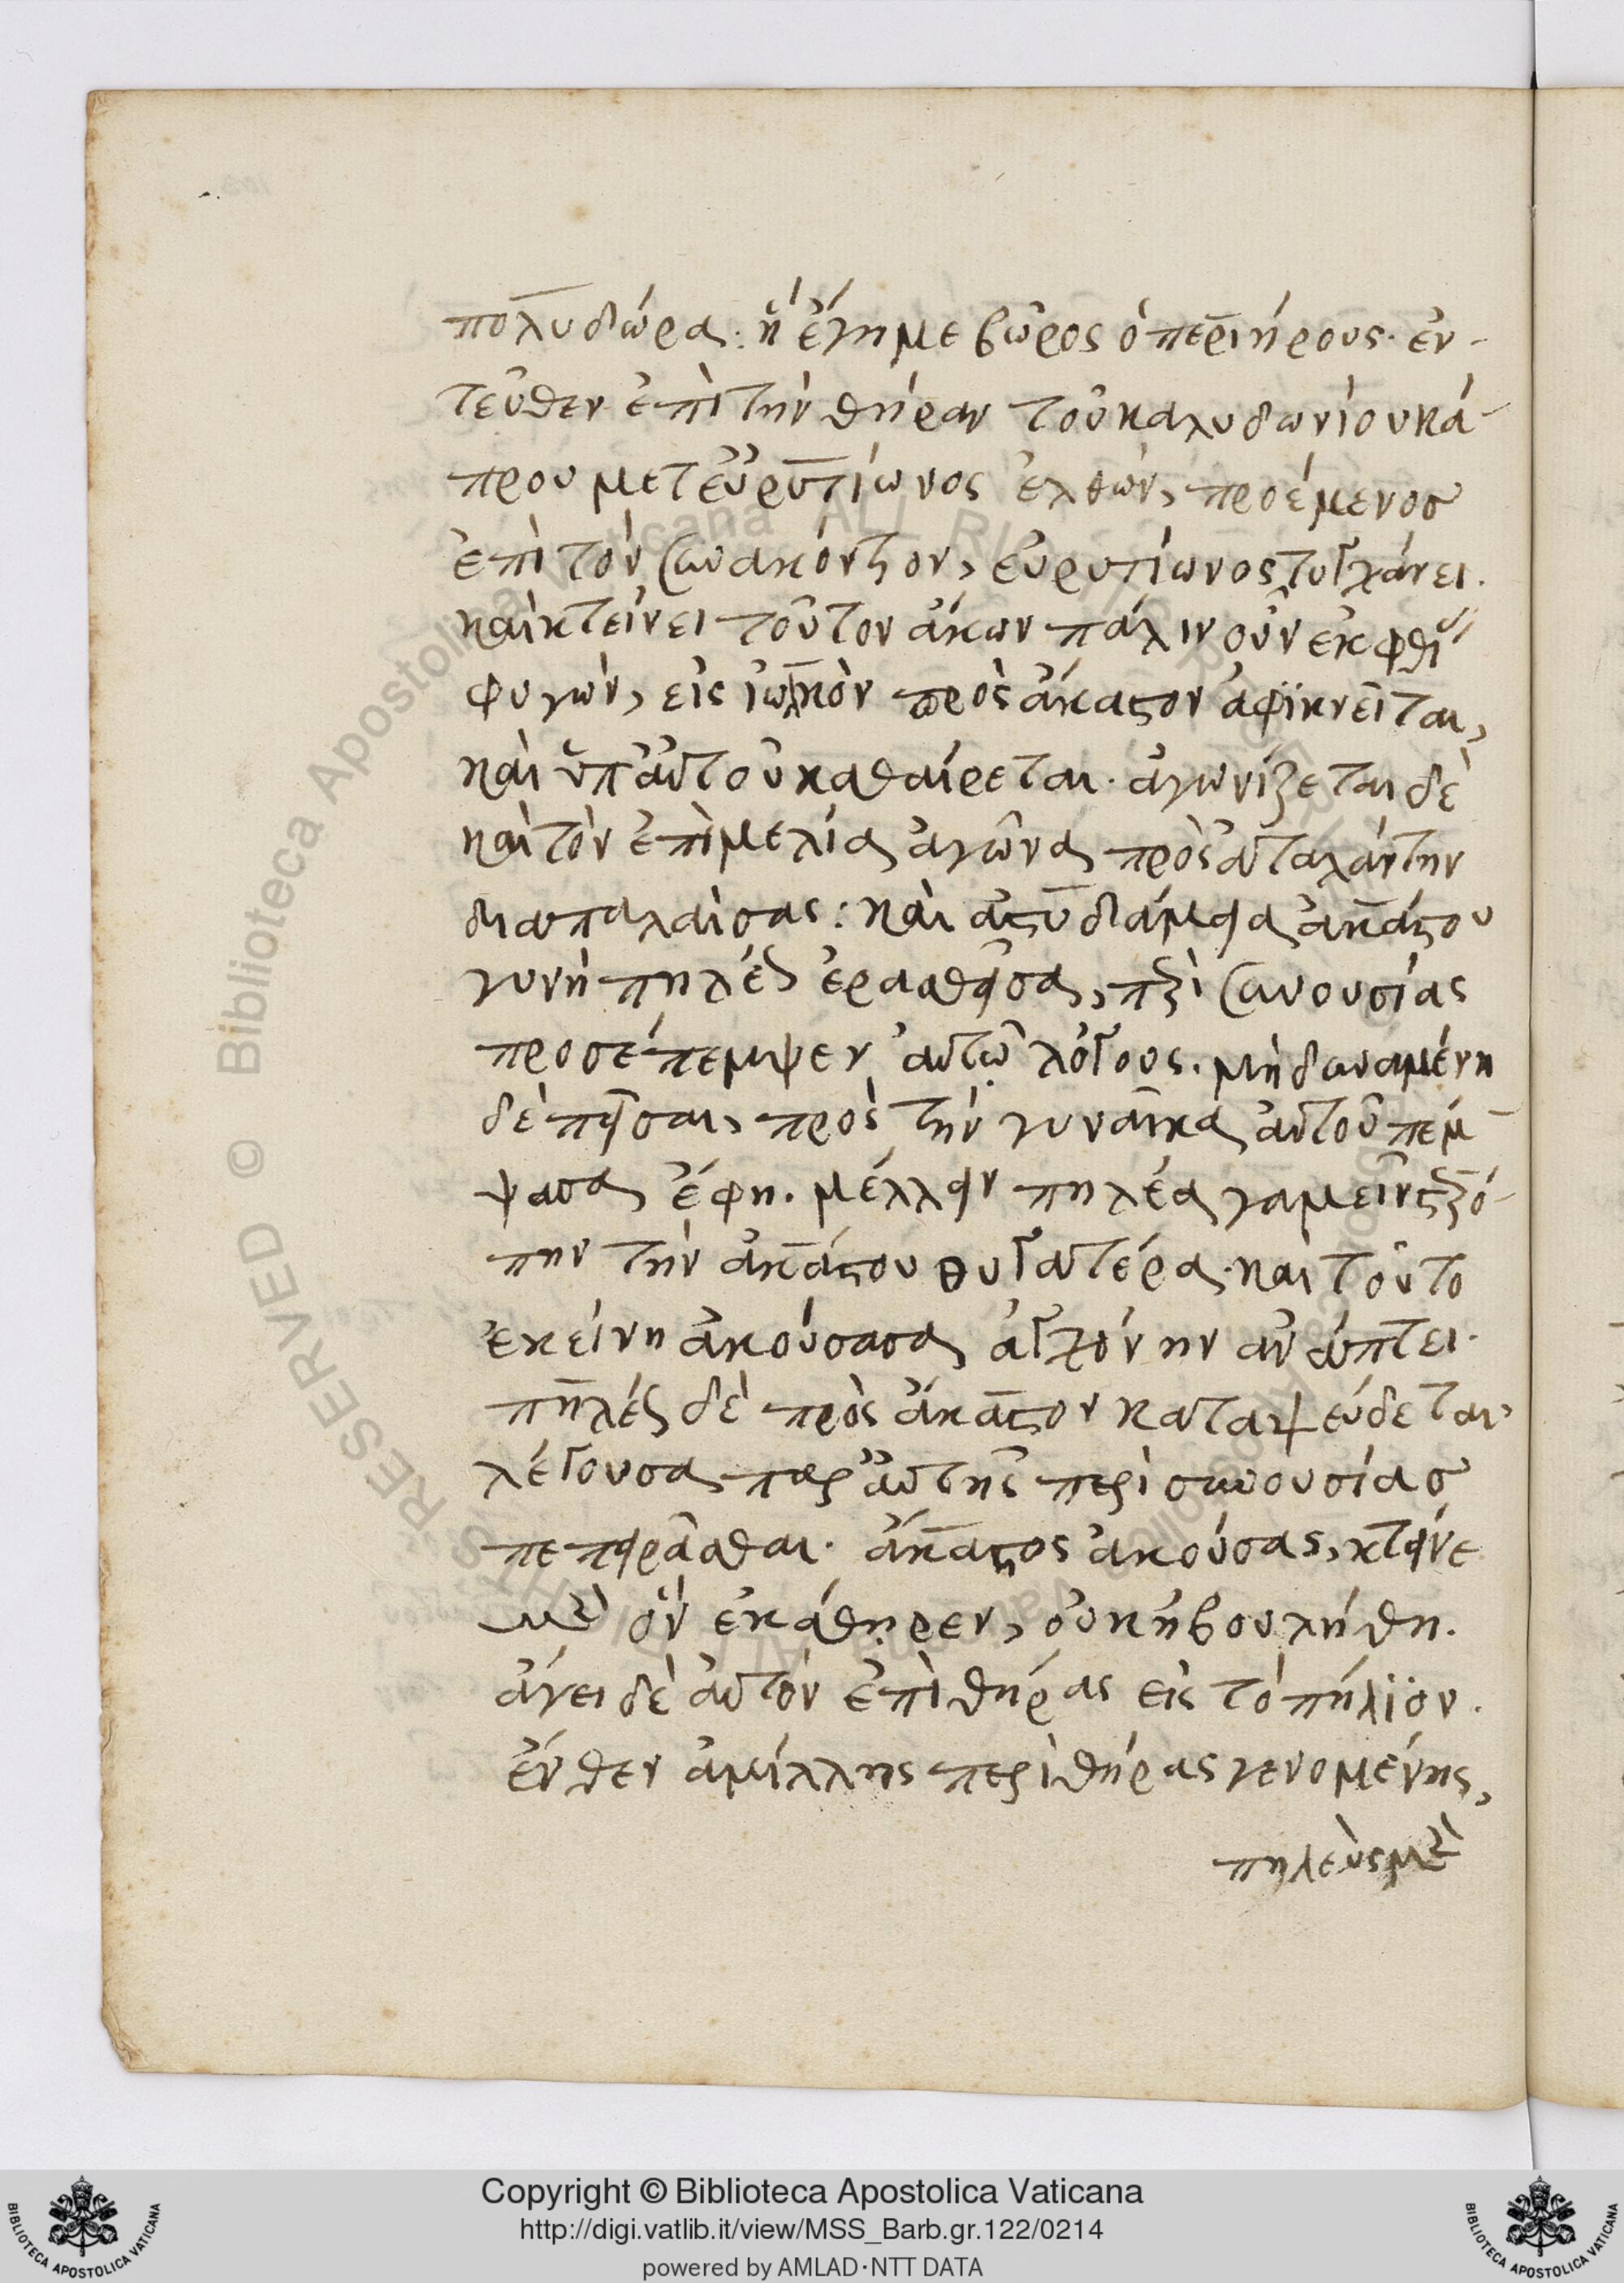 πολυδώρα· ἣ ἔγημε βῶρος ὁ περιήρους· ἐν-
τεῦθεν ἐπὶ τὴν θήραν τοῦ καλυδωνίου κά-
πρου μετ εὐρυτίωνος ἐλθών, προέμενος
ἐπὶ τὸν σῦν ἀκόντιον, εὐρυτίωνος τυγχάνει.
καὶ κτείνει τοῦτον ἄκων πάλιν οὖν ἐκ φθι
φυγών, εἰς ἰωλκὸν πρὸς ἄκαστον ἀφϊκνεῖται,
καὶ ὑπ αὐτοῦ καθαίρεται· ἀγωνίζεται δὲ
καὶ τὸν ἐπὶ μελία ἀγῶνα πρὸς ἀταλάντην
διαπαλαίσας: καὶ ἀστυδάμεια ἀκάστου
γυνὴ πηλέως ἐρασθεῖσα, περὶ συνουσίας
προσέπεμψεν αὐτῷ λόγους. μὴ δυναμένη
δὲ πεῖσαι, πρὸς τὴν γυναῖκα αὐτοῦ πέμ-
ψασα ἔφη. μέλλειν πηλέα γαμεῖν στερό-
πην τὴν ἀκάστου θυγατέρα· καὶ τοῦτο
ἐκείνη ἀκούσασα ἀγχόνην ἀνάπτει.
πηλέως δὲ πρὸς ἄκαστον καταψεύδεται
λέγουσα παρ αὐτῆς περὶ συνουσίας
πεπειρᾶσθαι. ἄκαστος ἀκούσας, κτεῖνε
μὲν ὃν ἐκάθηρεν, οὐκ ἠβουλήθη.
ἄγει δὲ αὐτὸν ἐπὶ θήρας εἰς τὸ πήλϊον.
ἔνθεν ἁμίλλης περὶ θήρας γενομένης,
πηλεὺς μὲν
Copyright © Biblioteca Apostolica Vaticana
http://digi.vatlib.it/view/MSS_Barb.gr.122/0214
powered by AMLAD·NTT DATA
BIBLIOTECA APOSTOLICA VATICANA
BIBLIOTECA APOSTOLICA VATICANA
© Biblioteca Apostolica Vaticana ALL RIGHTS RESERVED